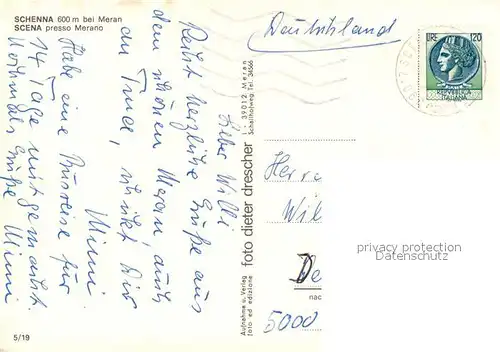 SCHENNA 600 m bei Meran
SCENA presso Merano
Lieber Willi
Recht herzliche Grüße aus
dem schönen Meran, auch
an Trude, schickt Dir
Mimi
Habe eine Busreise für
14 Tage mitgemacht.
Nochmals Grüße Mimi
5/19
Aufnahme u. Verlag
foto ed edizione
foto dieter drescher
I - 39012 Meran
Schallhofweg, Tel. 36566
Deutschland
LIRE 120
REPVBBLICA
ITALIANA
Herrn
Wil
De
nac
5000
privacy protection
Datenschutz